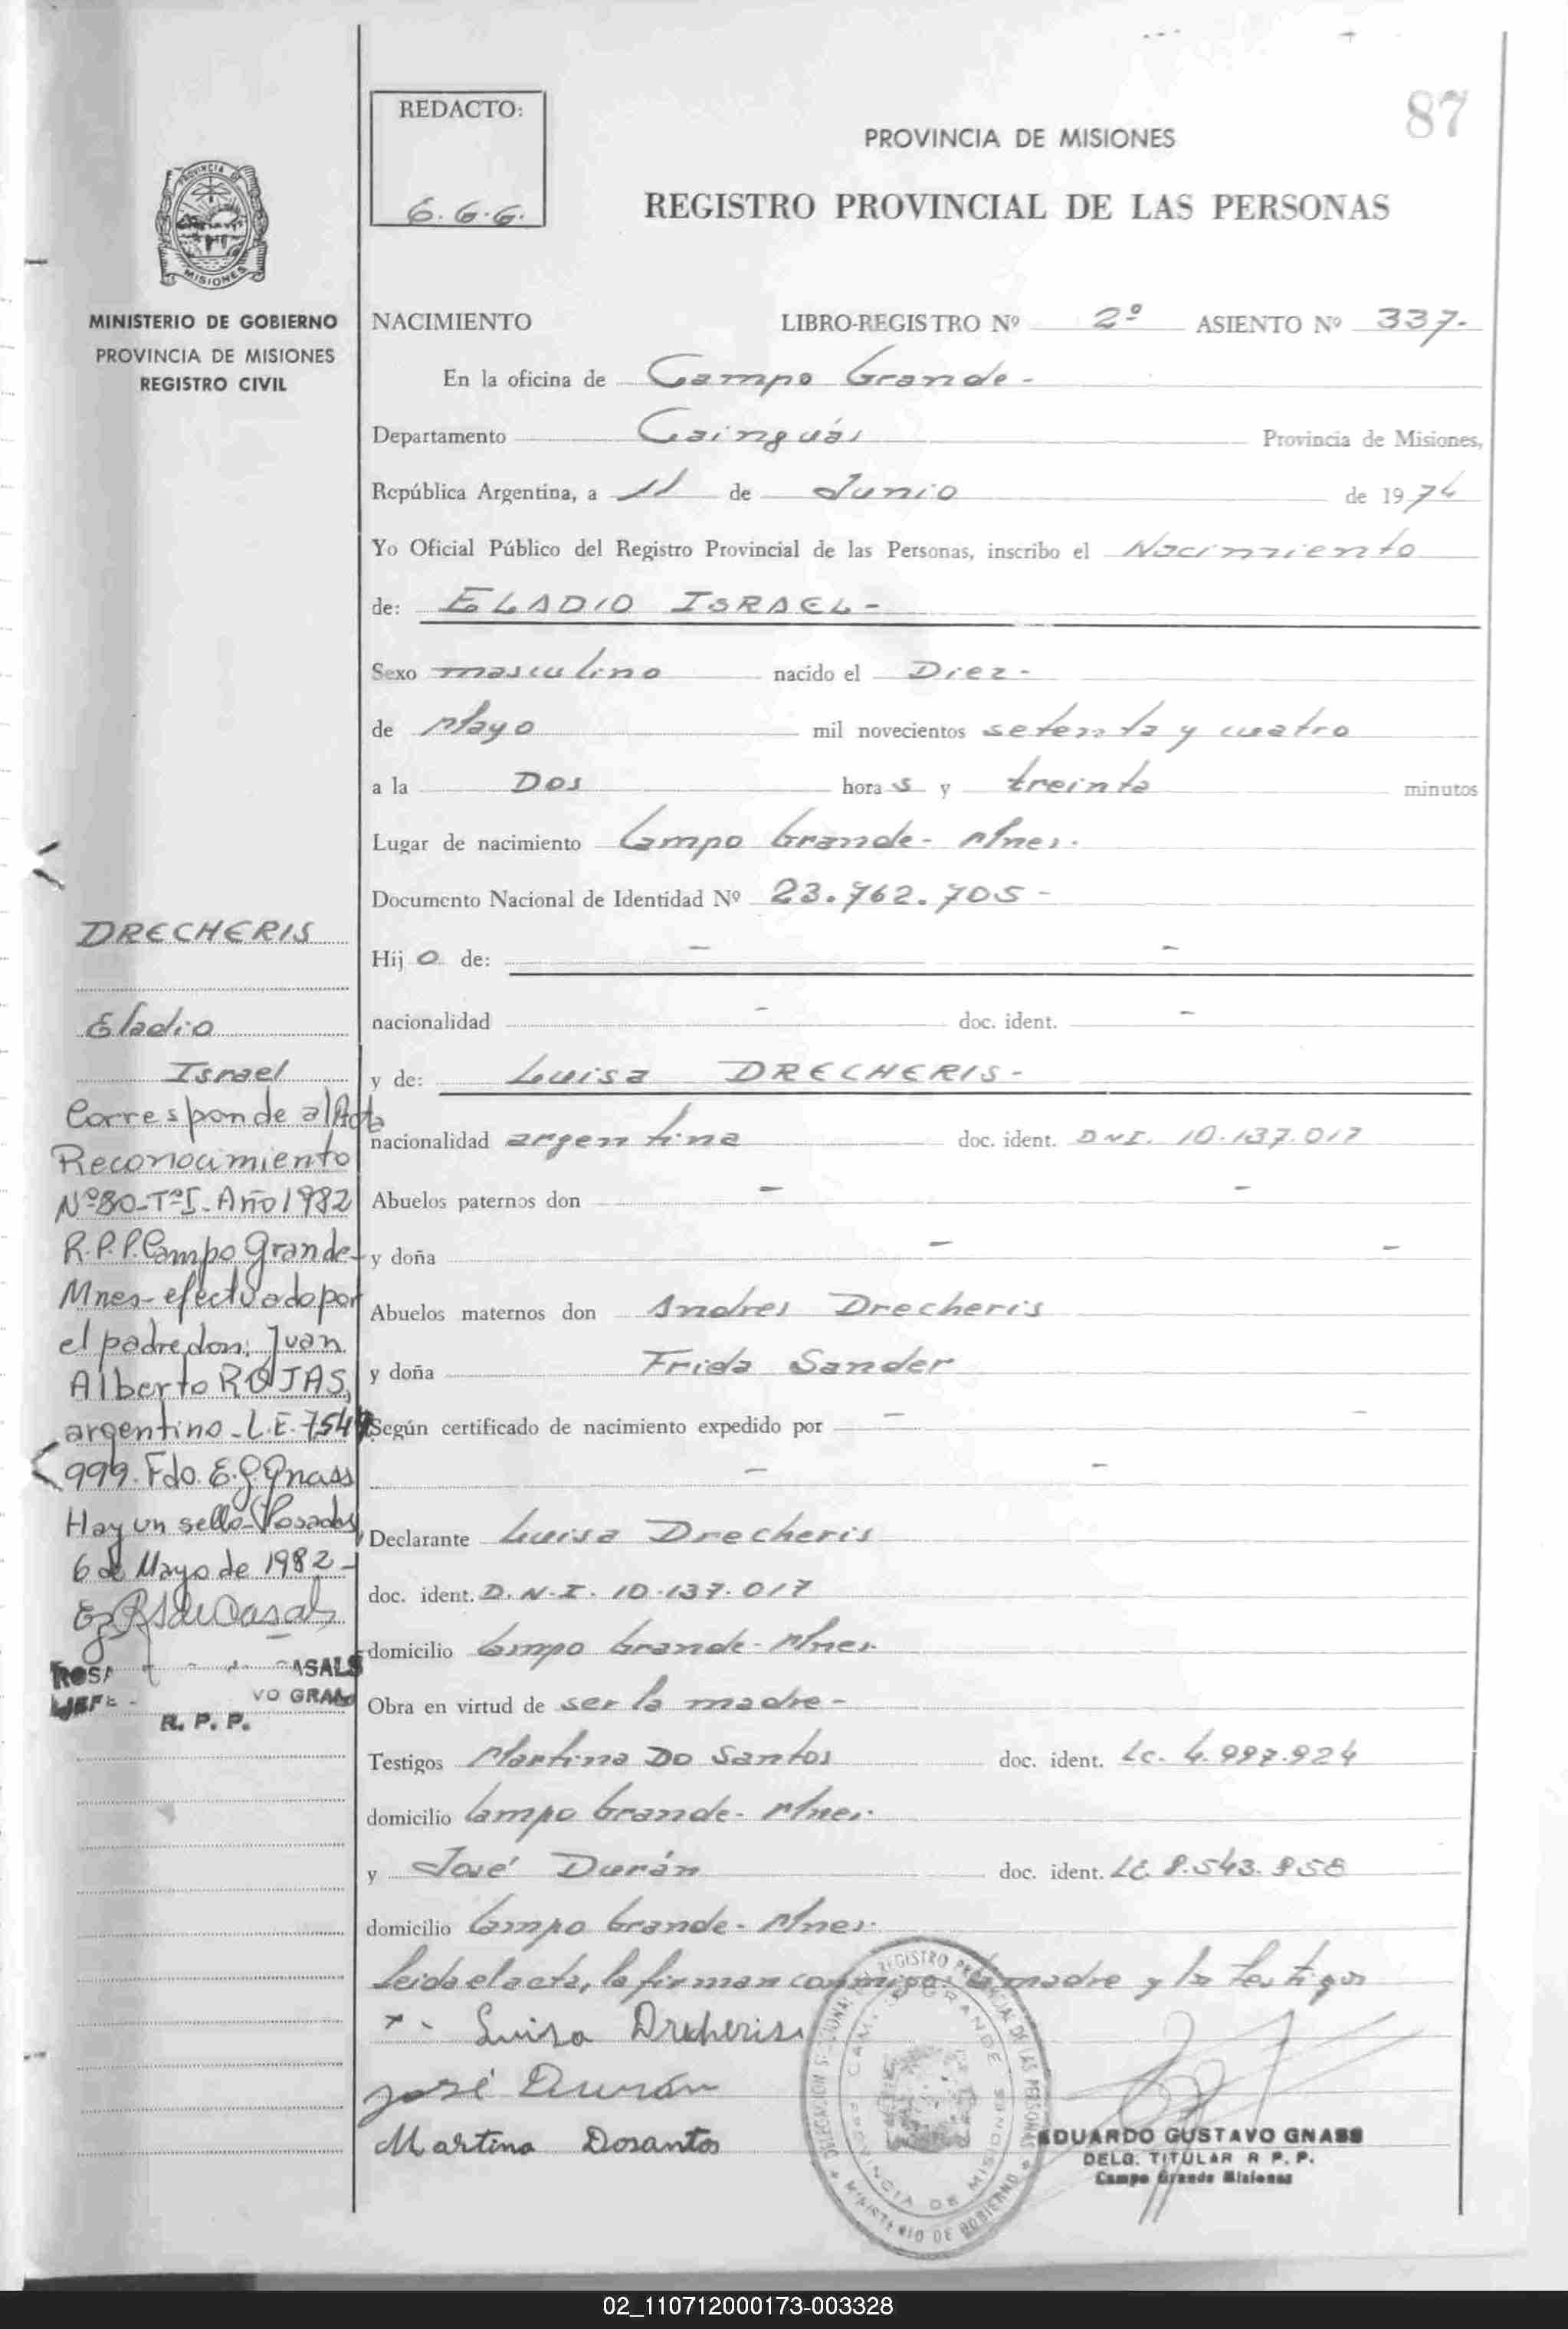 87
REDACTO:
6.6.6.
PROVINCIA DE MISIONES
REGISTRO PROVINCIAL DE LAS PERSONAS
PROVINCIA DE
MISIONES
MINISTERIO DE GOBIERNO
PROVINCIA DE MISIONES
REGISTRO CIVIL
NACIMIENTO LIBRO-REGISTRO Nº 2º ASIENTO Nº 337-
En la oficina de Campo Grande-
Departamento Cainguás Provincia de Misiones,
República Argentina, a 11 de Junio de 1974
Yo Oficial Público del Registro Provincial de las Personas, inscribo el Nacimiento
de: ELADIO ISRAEL-
Sexo masculino nacido el Diez-
de Mayo mil novecientos setenta y cuatro
a la Dos horas y treinta minutos
Lugar de nacimiento Campo Grande- Mnes.
Documento Nacional de Identidad Nº 23.762.705-
Hijo de: - -
nacionalidad - doc. ident. -
y de: Luisa DRECHERIS-
nacionalidad argentina doc. ident. DNI. 10.137.017
Abuelos paternos don - -
y doña - -
Abuelos maternos don Andres Drecheris
y doña Frida Sander
Según certificado de nacimiento expedido por - -
- -
Declarante Luisa Drecheris
doc. ident. D.N.I. 10.137.017
domicilio Campo Grande- Mnes.
Obra en virtud de ser la madre-
Testigos Martina Do Santos doc. ident. Lc. 4.997.924
domicilio Campo Grande- Mnes.
y José Durán doc. ident. LE. 8.543.858
domicilio Campo Grande- Mnes.
Leida el acta, la firman conmigo: la madre y los testigos
x- Luisa Drecheris
José Durán
Martina Dosantos
DRECHERIS
Eladio
Israel
Corresponde al Acta
Reconocimiento
Nº80-TºI-Año 1982
R.P.P. Campo Grande-
Mnes-efectuado por
el padre don: Juan
Alberto ROJAS,
argentino-L.E.7549
999. Fdo. E.G.Gnass
Hay un sello-Posadas,
6 de Mayo de 1982-
ASALS
VO GRAN
R. P. P.
DELEGACION SECCIONAL DEL REGISTRO PROVINCIAL DE LAS PERSONAS
CAMPO GRANDE MISIONES
PROVINCIA DE MISIONES
MINISTERIO DE GOBIERNO
EDUARDO GUSTAVO GNASS
DELG. TITULAR R P. P.
Campo Grande Misiones
02_110712000173-003328